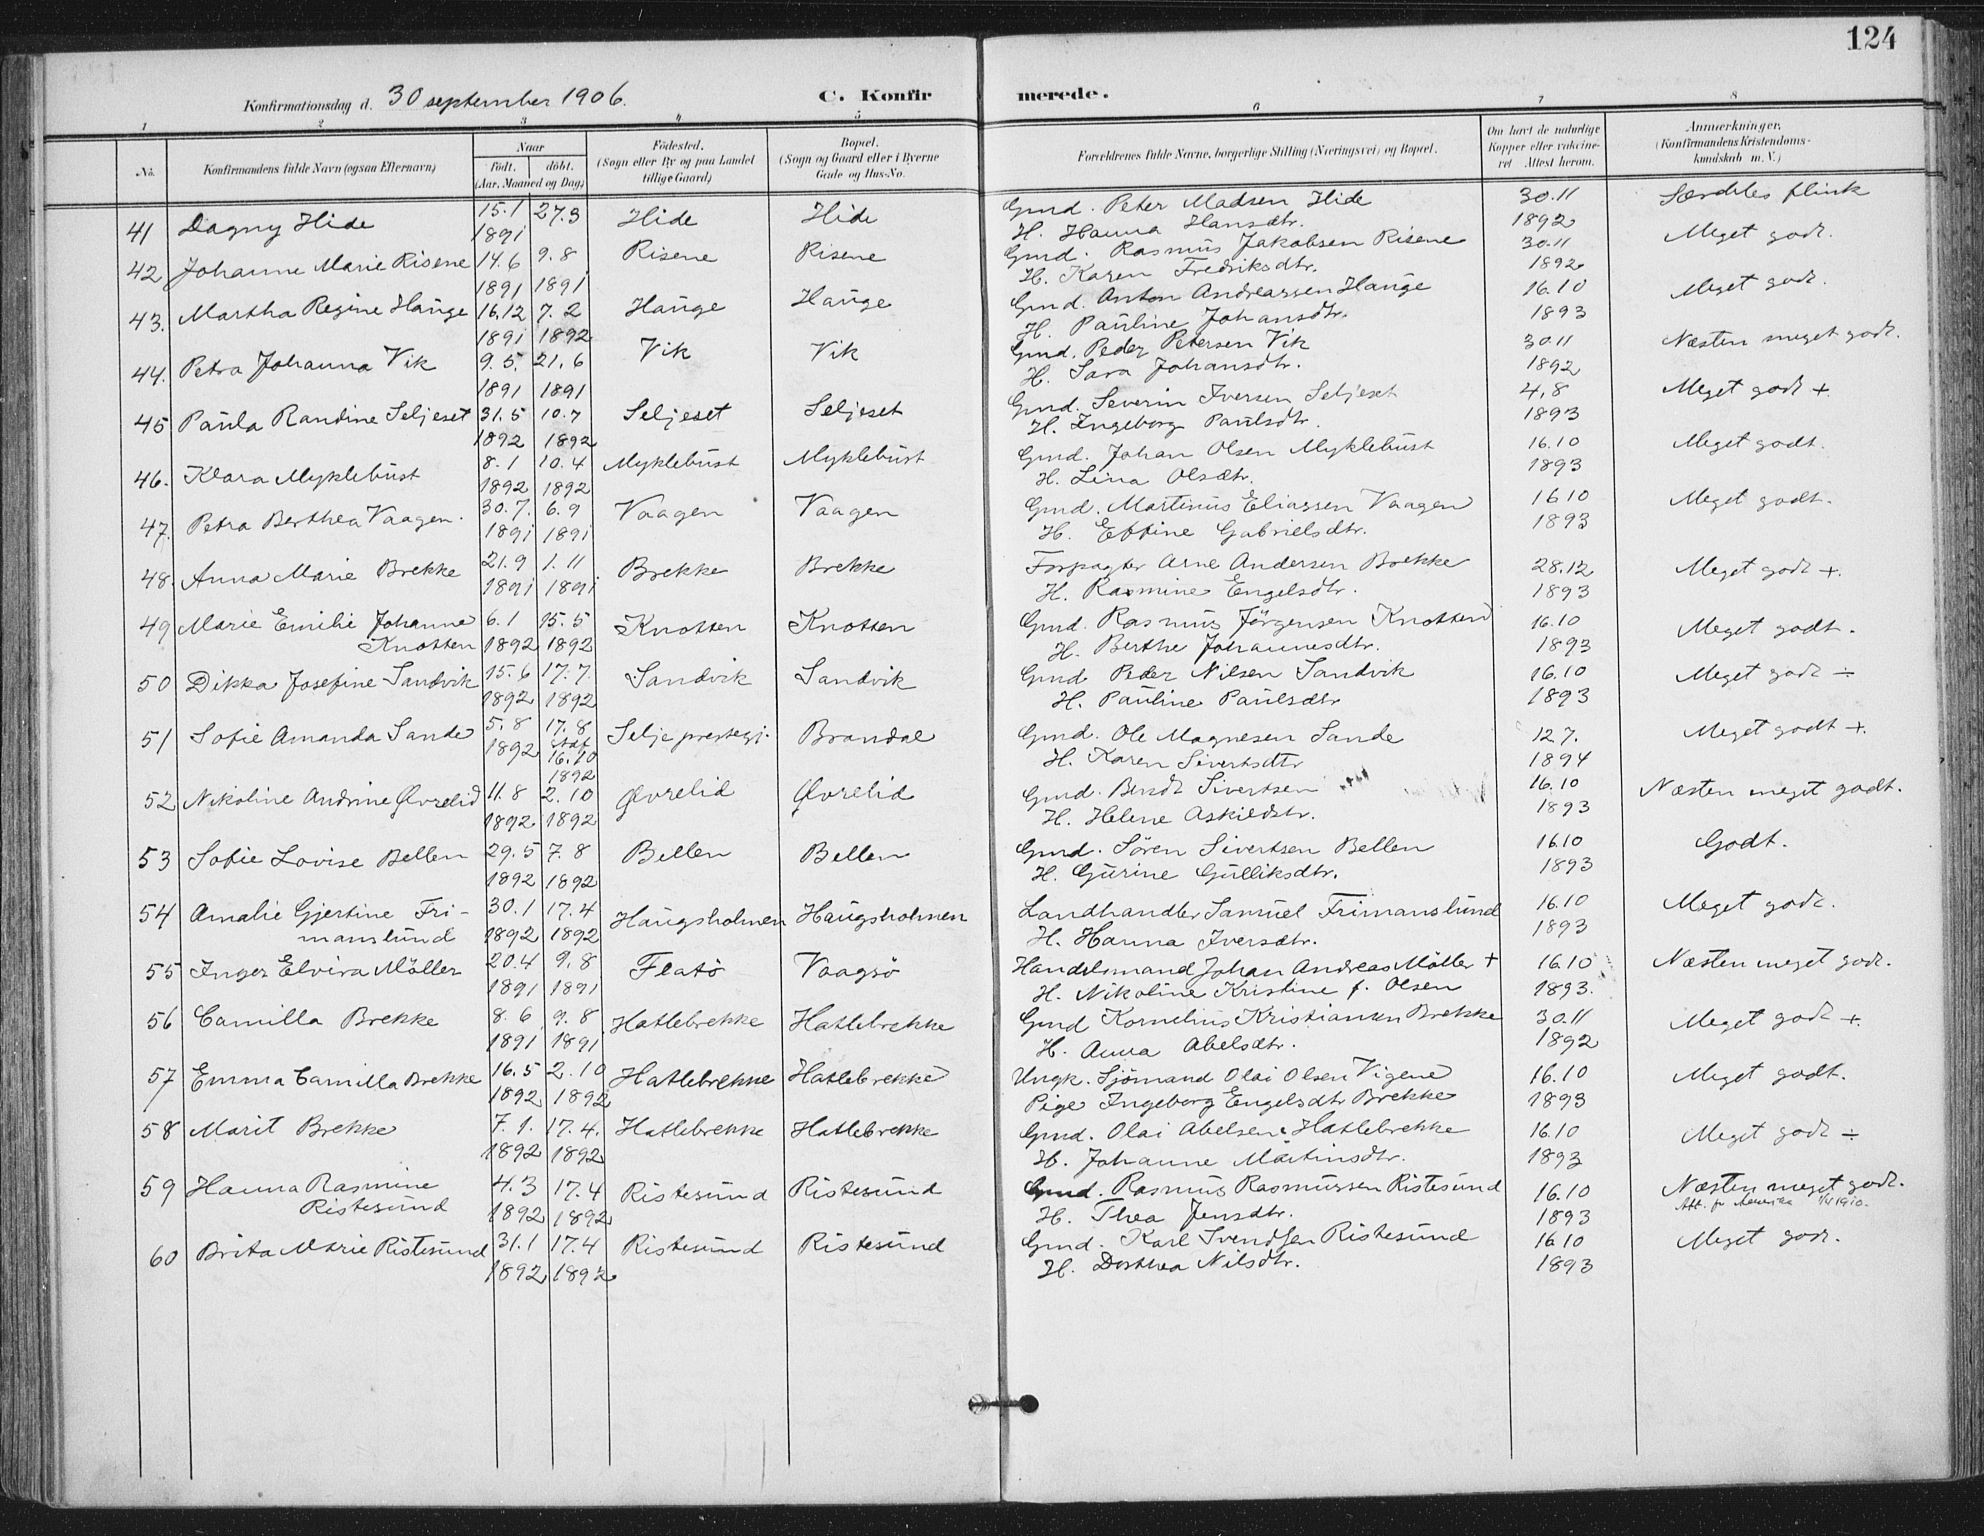 124
Konfirmationsdag d. 30 september 1906.
C. Konfirmerede.
1 2 3 4 5 6 7 8
No.
Konfirmandens fulde Navn (ogsaa Efternavn)
Naar
födt. döbt.
(Aar, Maaned og Dag)
Födested.
(Sogn eller By og paa Landet
tillige Gaard)
Bopæl.
(Sogn og Gaard eller i Byerne
Gade og Hus-No.
Forældrenes fulde Navne, borgerlige Stilling (Næringsvei) og Bopæl.
Om havt de naturlige
Kopper eller vakcine-
ret Attest herom.
Anmærkninger.
(Konfirmandens Kristendoms-
kundskab m. V.)
41 Dagny Hide 15.1 27.3 Hide Hide Gmd. Peter Madsen Hide 30.11 Særdeles flink
1891 H. Hanna Hansdtr. 1892
42 Johanne Marie Risene 14.6 9.8 Risene Risene Gmd. Rasmus Jakobsen Risene 30.11 Meget godt.
1891 1891 H. Karen Fredriksdtr. 1892
43. Martha Regine Hauge 16.12 7.2 Hauge Hauge Gmd. Anton Andreassen Hauge 16.10 Meget godt.
1891 1892 H. Pauline Johansdtr. 1893
44. Petra Johanna Vik 9.5. 21.6 Vik Vik Gmd. Peder Petersen Vik 30.11 Næsten meget godt.
1891 1891 H. Sara Johansdtr. 1892
45 Paula Randine Seljeset 31.5 10.7 Seljeset Seljeset Gmd. Severin Iversen Seljeset 4.8 Meget godt +.
1892 1892 H. Ingeborg Paulsdtr. 1893
46. Klara Myklebust 8.1 10.4 Myklebust Myklebust Gmd. Johan Olsen Myklebust 16.10 Meget godt.
1892 1892 H. Lina Olsdtr. 1893
47. Petra Berthea Vaagen. 30.7. 6.9 Vaagen Vaagen Gmd. Martinus Eliassen Vaagen 16.10 Meget godt.
1891 1891 H. Effine Gabrielsdtr. 1893
48. Anna Marie Brekke 21.9 1.11 Brekke Brekke Forpagter Arne Andersen Brekke 28.12 Meget godt +.
1891 1891 H. Rasmine Engelsdtr. 1893
49 Marie Emilie Johanne 6.1 15.5 Knotten Knotten Gmd. Rasmus Jörgensen Knotten 16.10 Meget godt.
Knotten 1892 1892 H. Berthe Johannesdtr. 1893
50 Dikka Josefine Sandvik 15.6 17.7. Sandvik Sandvik Gmd Peder Nilsen Sandvik 16.10 Meget godt ÷
1892 1892 H. Pauline Paulsdtr 1893
51 Sofie Amanda Sande 5.8 17.8 Selje prestegj. Brandal Gmd. Ole Magnesen Sande 12.7. Meget godt +.
1892 stadf. 16.10 1892 H. Karen Sivertsdtr 1894
52 Nikoline Andrine Øvrelid 11.8 2.10 Øvrelid Øvrelid Gmd. Berdt Sivertsen 16.10 Næsten meget godt.
1892 1892 H. Helene Askildstr. 1893
53 Sofie Lovise Bellen 29.5 7.8 Bellen Bellen Gmd. Sören Sivertsen Bellen 16.10 Godt.
1892 1892 H. Gurine Gulliksdtr. 1893
54 Amalie Gjertine Fri- 30.1 17.4 Haugsholmen Haugsholmen Landhandler Samuel Frimanslund 16.10 Meget godt.
manslund 1892 1892 H. Hanna Iversdtr. 1893
55 Inger Elvira Möller 20.4 9.8 Flatö Vaagsö Handelsmand Johan Andreas Möller + 16.10 Næsten meget godt.
1891 1891 H. Nikoline Kristine f. Olsen 1893.
56 Camilla Brekke 8.6 9.8 Hatlebrekke Hatlebrekke Gmd Kornelius Kristiansen Brekke 30.11 Meget godt +.
1891 1891 H. Anna Abelsdtr. 1892
57 Emma Camilla Brekke 16.5 2.10 Hatlebrekke Hatlebrekke Ungk. Sjömand Olai Olsen Vigene 16.10 Meget godt.
1892 1892 Pige Ingeborg Engelsdtr Brekke 1893
58 Marit Brekke 7.1. 17.4. Hatlebrekke Hatlebrekke Gmd. Olai Abelsen Hatlebrekke 16.10 Meget godt ÷
1892 1892 H. Johanne Martinsdtr. 1893
59 Hanna Rasmine 4.3 17.4 Ristesund Ristesund Gmd. Rasmus Rasmussen Ristesund 16.10 Næsten meget godt.
Ristesund 1892 1892 H. Thea Jensdtr. 1893 Att. p. Amerika 1910.
60 Brita Marie Ristesund 31.1 17.4 Ristesund Ristesund Gmd. Karl Svendsen Ristesund 16.10 Meget godt.
1892 1892 H. Dorthea Nilsdtr. 1893